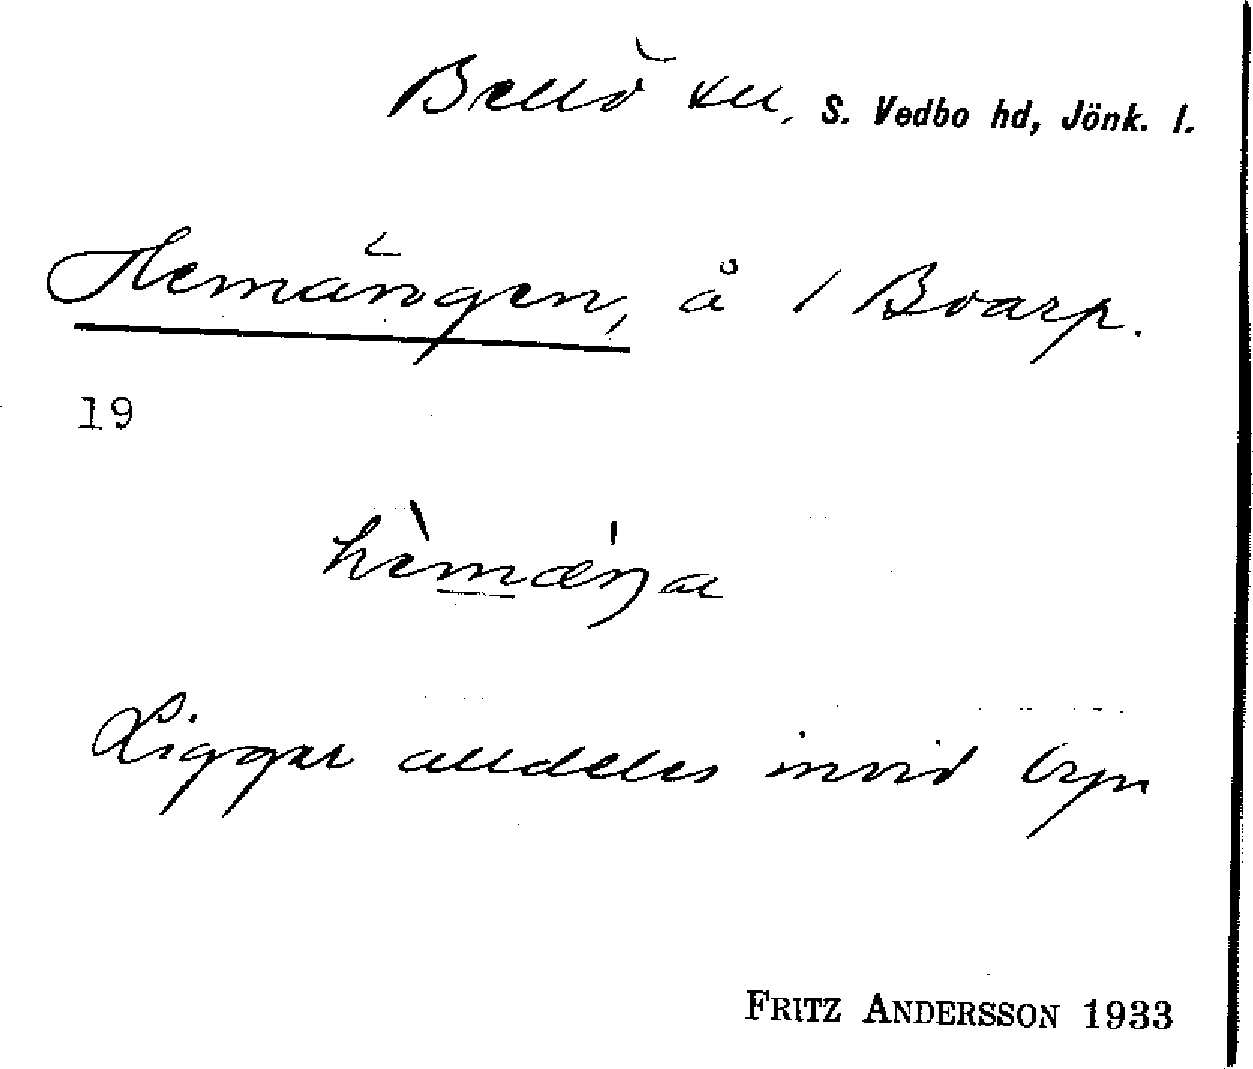 Bellö sn, S. Vedbo hd, Jönk. l.
Hemängen, å 1 Boarp.
19
hèmæŋa
Ligger alldeles invid byn
FRITZ ANDERSSON 1933